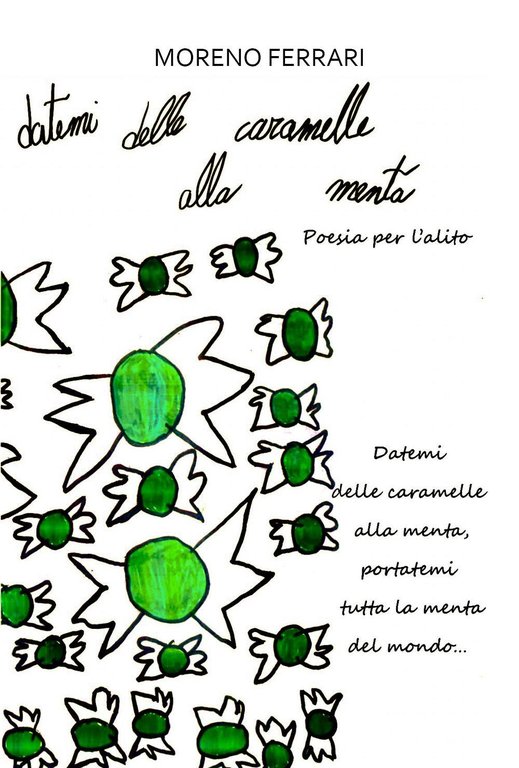 MORENO FERRARI
datemi delle caramelle
alla menta
Poesia per l'alito
Datemi
delle caramelle
alla menta,
portatemi
tutta la menta
del mondo...